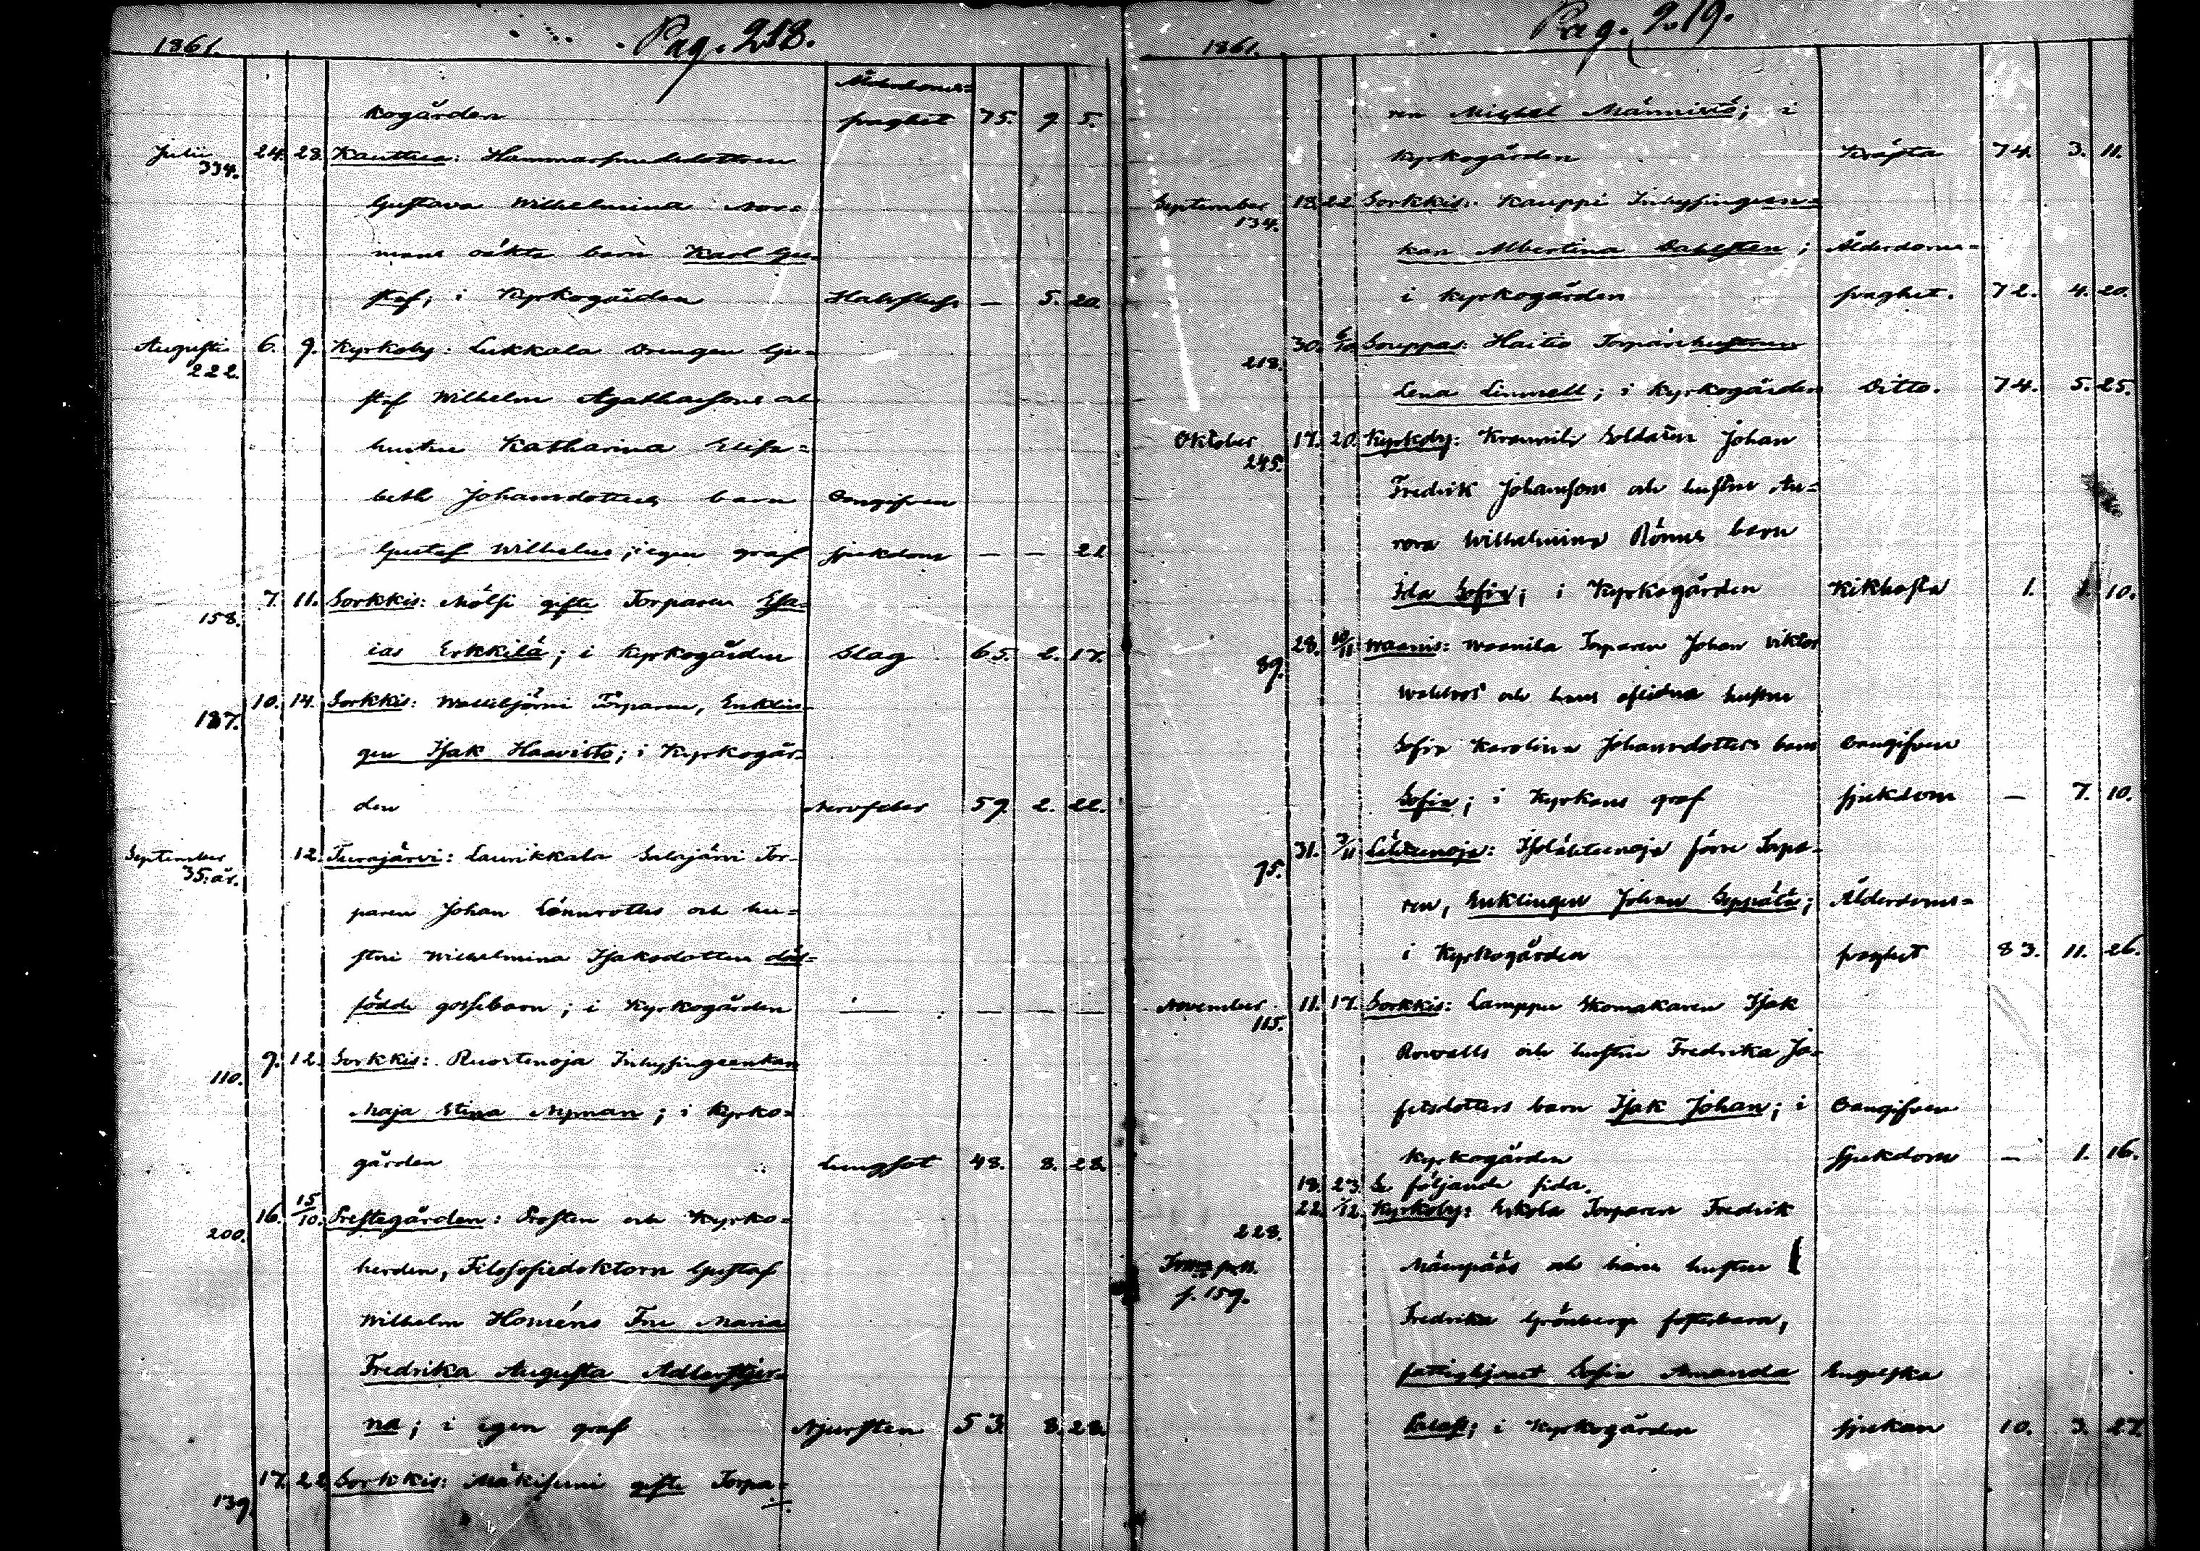 1861. Pag. 218.
Ålderdoms=
kogården fraghet 75. 9. 5.
Julii 24. 28. Kauttua: Hammarsmedsdottren
334.
Gustava Wilhelmina Nor=
mans oäkta barn Karl Gu=
staf; i Kyrkogården Halsfluss — 5. 20.
Augusti 6. 9. Kyrkoby: Lukkala Drengen Gu=
222.
staf Wilhelm Agathassons och
hustru Katharina Elisa=
beth Johansdotters barn Oangifven
Gustaf Wilhelm; i egen graf sjukdom — — 21
7. 11. Sorkkis: Mölsi gifte Torparen Esa=
158.
ias Erkkilä; i Kyrkogården Slag 65. 2. 17.
10. 14. Sorkkis: Torparen, Enklin=
187.
gen Isak Haavisto; i Kyrkogår=
den Nervfeber 59. 2. 22.
September 12. Turajärvi: Laurikkala Salajärvi Tor=
35. år.
paren Johan Lönnroths och hu=
stru Wilhelmina Isaksdotters död=
födde gossebarn; i Kyrkogården — — — —
9. 12. Sorkkis: Ruortenoja Inhysingsenkan
110.
Maja Stina Nyman; i Kyrko=
gården Lungsot 48. 8. 28.
16. 15/10. Prestegården: Prosten och Kyrko=
200.
herden, Filosofiedoktorn Gustaf
Wilhelm Homéns Fru Maria
Fredrika Augusta Adlerstjer=
na; i egen graf Njursten 53. 8. 28.
17. 22 Sorkkis: Mäkisuni gifte Torpa=
139.
1861. Pag. 219.
ren Michel Männistö; i
kyrkogården Kräfta 74. 3. 11.
September 18. 22 Sorkkis: Kauppi Inhysingsen=
134.
kan Albertina Dahlsten; Ålderdoms=
i kyrkogården fraghet. 72. 4. 20.
30. 6/10 Souppas: Haitio Torparehustrun
218.
Lena Linnell; i Kyrkogården Ditto. 74. 5. 25.
Oktober 17. 20. Kyrkoby: Soldaten Johan
245.
Fredrik Johanssons och hustru Au=
rora Wilhelmina Rönns barn
Ida Sofia; i Kyrkogården Kikhosta 1. 1. 10.
28. 10/11 Waanis: Waanila Torparen Johan Viktor
89.
och hans aflidna hustru
Sofia Karolina Johansdotters barn Oangifven
Sofia; i Kyrkans graf sjukdom — 7. 10.
31. 3/11 förre Torpa=
75.
ren, Enklingen Johan Seppälä; Ålderdoms=
i Kyrkogården fraghet 83. 11. 26.
November 11. 17. Sorkkis: Lamppu Skomakaren Isak
115.
Rowalls och hustru Fredrika Jo=
sefsdotters barn Isak Johan; i Oangifven
kyrkogården Sjukdom — 1. 16.
18. 23. Se följande sida.
22. 1/12. Kyrkoby: Eskola Torparen Fredrik
228.
Mäenpääs och hans hustru
p. 159.
Fredrika Grönbergs fosterbarn,
fattighjonet Sofia Amanda Engelska
i Kyrkogården sjukan 10. 3. 27